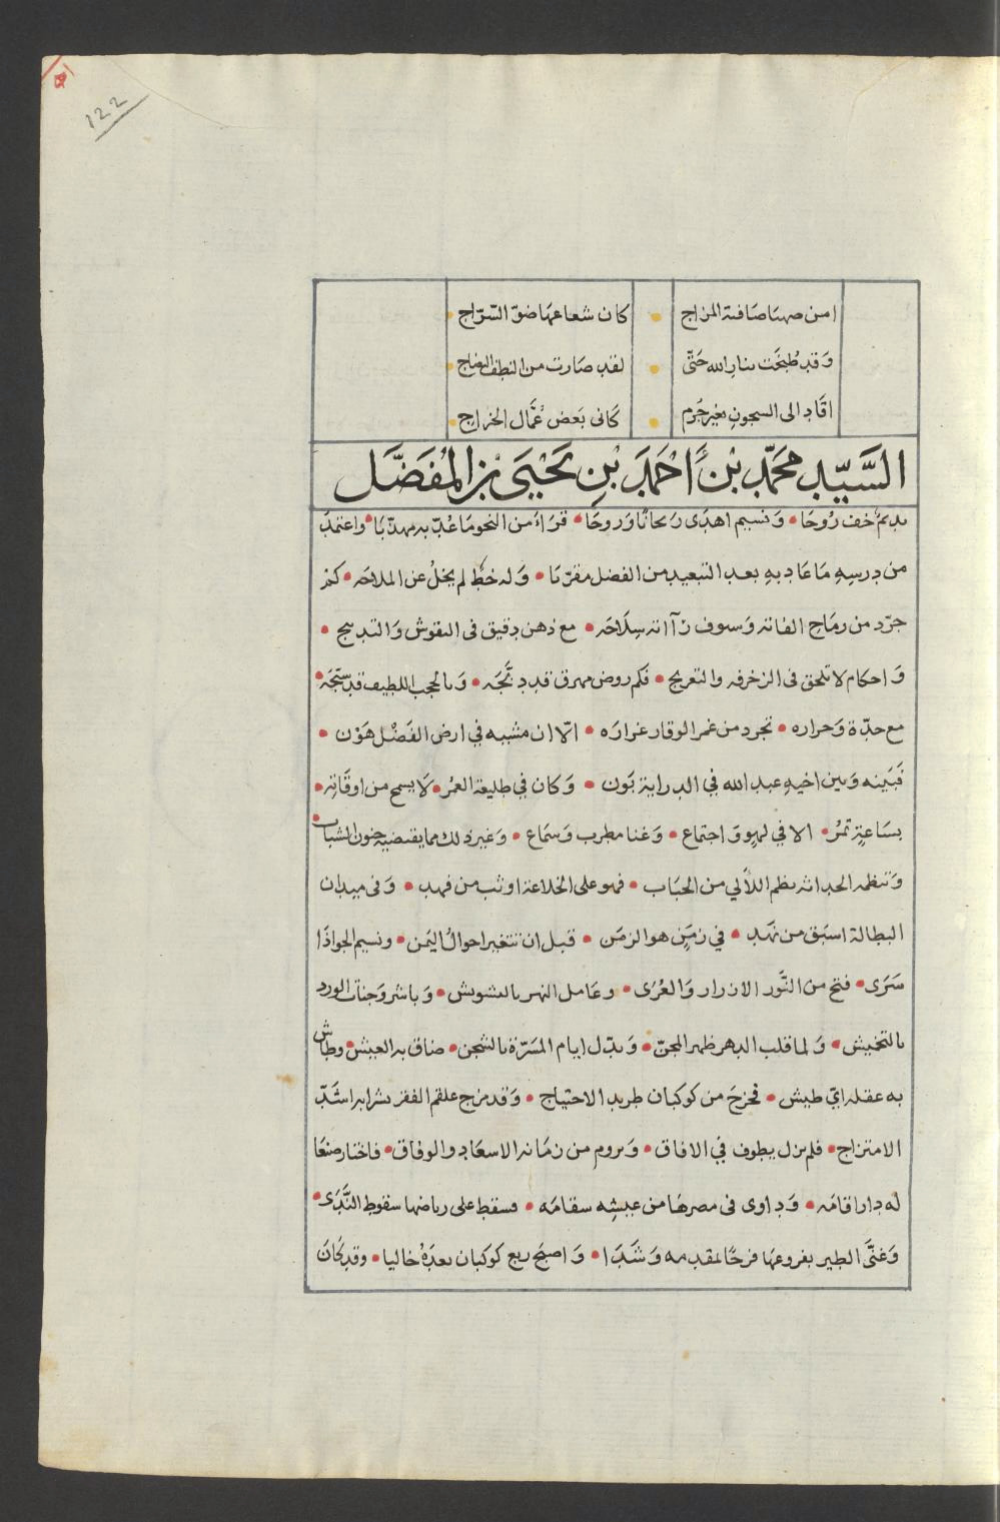 122
امن صهبا صافية المزاج • كان شعاعها ضوّ السّراج
وَقد طُبخَت بنارِ الله حَتّى • لقد صَارت من النطف النضاج
اقَاد الى السجونِ بغير جَرم • كَانى بَعض عُمَّال الخراج
السَّيّد محَمّد بْن اَحْمَدَ بْنِ يَحْيَى بن المُفَضَّل
نديمٌ خف رُوحَا • وَنسيم اهدَى رَيحانًا وَروحَا • قرَاءَ من النحو مَا غدّ به مهذّبا • واعتمدَ
من درسِهِ مَا عَاد بهِ بعد التبعيد من الفضل مقرّبَا • وَله خطٌ لم يخلُ عن الملاحَه • كم
جرّد من رمَاح الفاته وَسيوف زَآاته سِلَاحَه • مع ذهن دقيق فى النقوش وَالتدبيج •
وَاحكام لا تلحق فى الزخرفه والتعريج • فكم روض مهرق قد دَبَّجَه • وَبالحجب اللطيف قد سيّجَه •
مع حدّة وَحراره • تجرد من غمر الوقار غرارَه • الّا ان مشيه في ارض الفَضْل هَوْن •
فَبَينه وَبين اخيهِ عبد الله في الدراية بَون • وَكان في طليعة العمُر • لَا يسمح من اوقَاتِه •
بسَاعةٍ تمُر • الا في لهوٍ وَ اجتماع • وَغنا مطرب وَسَماع • وَغير ذلك مما يقتضيه جنون الشباب •
وَتنظمه الحداثه نظم اللآلي من الحبَاب • فهو على الخلاعة اوثب من فهد • وَفى ميدان
البطالة اسبَق من نَهد • في زمَنٍ هو الزمَن • قبل ان تتغير احوالُ اليَمن • ونسيم الجوَاذا
سَرَى • فتح من النَّور الازرار وَالعُرى • وعَامل النهر بالتشويش • وَباشر وَجنات الورد
بالتخيش • وَلما قلب الدهر ظهر المجنّ • وَبدّل ايام المَسَرّة بالشجن • ضاق به العيش وطاش
به عقله ايّ طيش • فخرَجَ من كوكبان طريد الاحتياج • وَقد مزج علقم الفقر شرابه اشَدّ
الامتزاج • فلم يزل يطوف في الافاق • وَيروم من زمَانه الاسعَاد والوفاق • فاختار صنعَا
له دار اقامَه • وَداوى فى مصرهَا من عيشه سقامَه • فسقط على رياضها سقوط النَّدى •
وَغنَّى الطير بفروعهَا فرحًا بمقدمه وَشَدَا • وَاصبَح ربع كوكبان بعدَهُ خاليا • وقد كَانَ